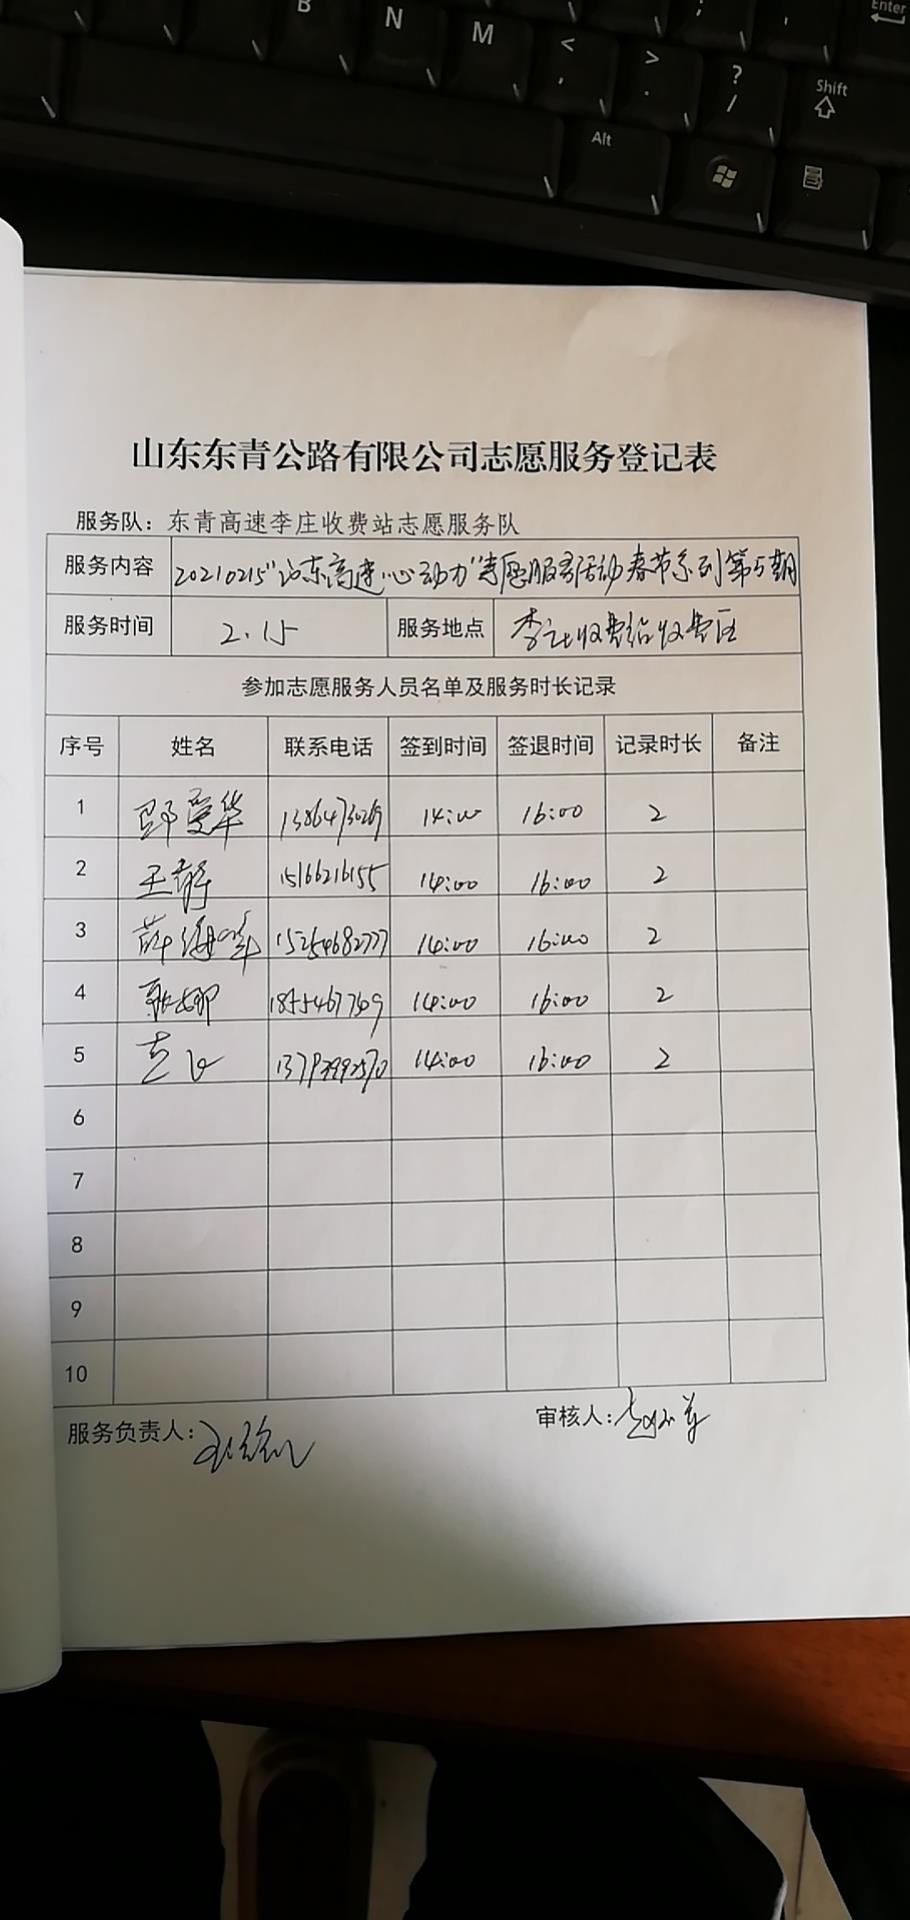 B N M < , > . ? / ; '
Enter
Shift
Alt
山东东青公路有限公司志愿服务登记表
服务队：东青高速李庄收费站志愿服务队
服务内容 20210215"山东高速·心动力"志愿服务活动春节系列第5期
服务时间 2.15 服务地点 李庄收费站收费区
参加志愿服务人员名单及服务时长记录
序号 姓名 联系电话 签到时间 签退时间 记录时长 备注
1 爱华 14:00 16:00 2
2 王静 15166216155 14:00 16:00 2
3 薛海 15254682777 14:00 16:00 2
4 娜 14:00 16:00 2
5 14:00 16:00 2
6
7
8
9
10
服务负责人： 审核人：